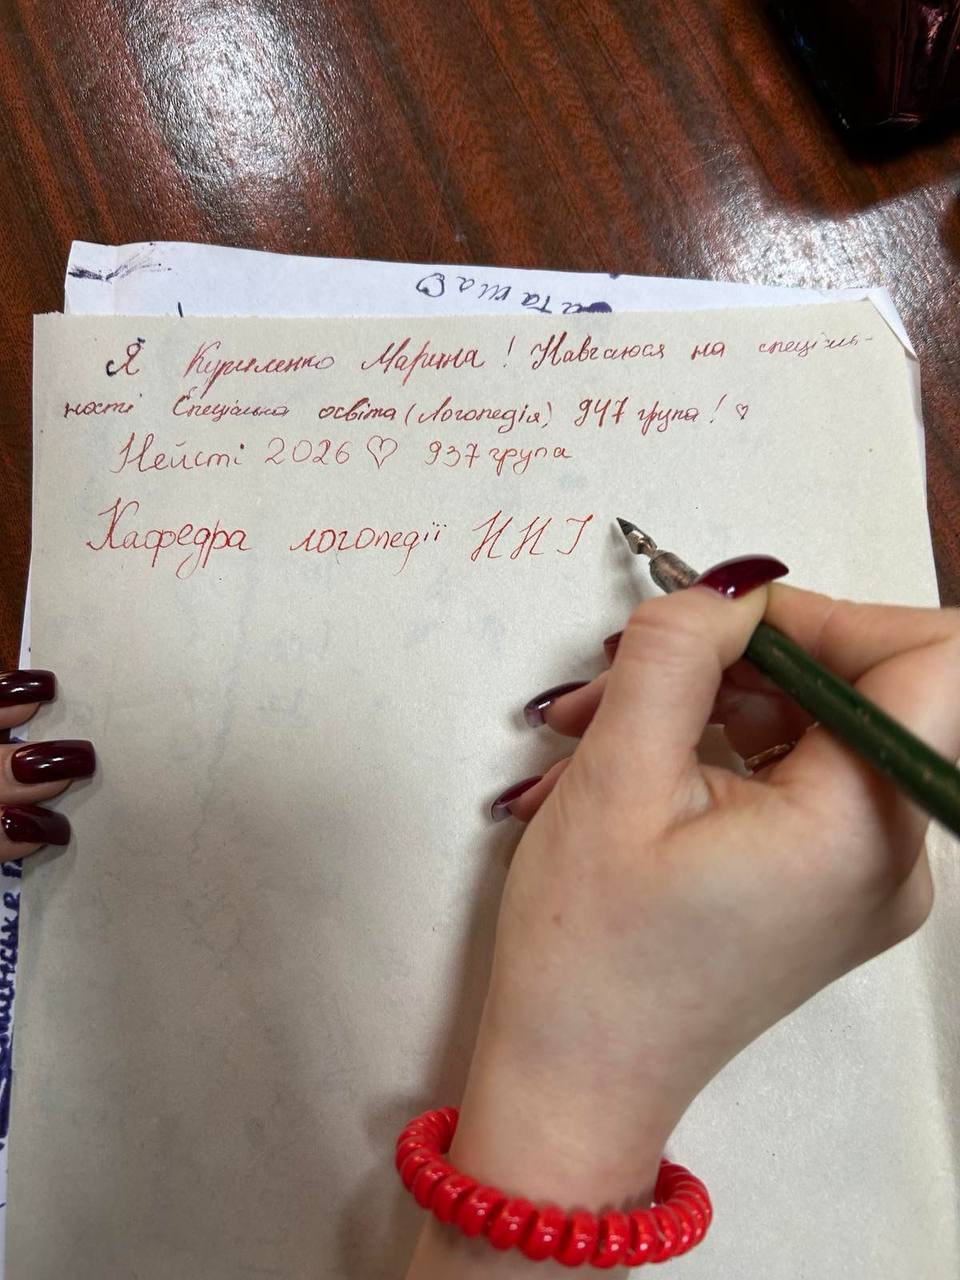 аташа
Я Куриленко Марина! Навчаюся на спеціаль-
ності Спеціальна освіта (Логопедія) 947 група! ♡
2026 ♡ 937 група
Кафедра логопедії ННІ